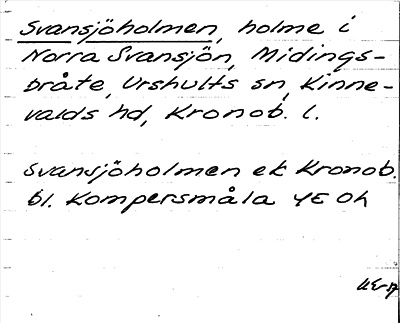 Svansjöholmen, holme i
Norra Svansjön, Midings-
bråte, Urshults sn, Kinne-
valds hd, Kronob. l.
Svansjöholmen ek Kronob.
bl. Kompersmåla 4E Oh